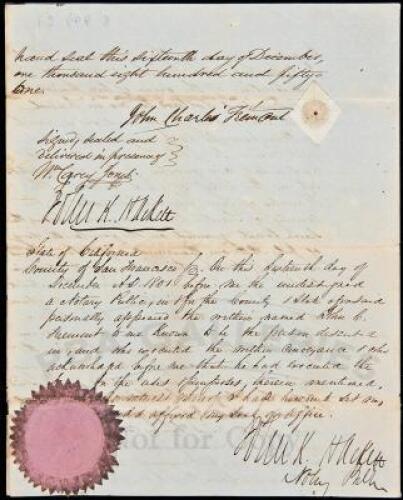 hand seal this sixteenth day of December,
one thousand eight hundred and fifty-
one.
John Charles Fremont
signed, sealed and
delivered in presence of
Wm Carey Jones
K. Hackett
State of California
County of San Francisco On this sixteenth day of
December A.D. 1851 before me the undersigned
a Notary Public, in & for the County & State aforesaid
personally appeared the within named John C.
Fremont to me known to be the person described
in, and who executed the within conveyance & who
acknowledged before me that he had executed the
in the uses & purposes, therein mentioned.
witness I have hereunto set my
and affixed my seal of office.
K. Hackett
Notary Public
Not for Copy